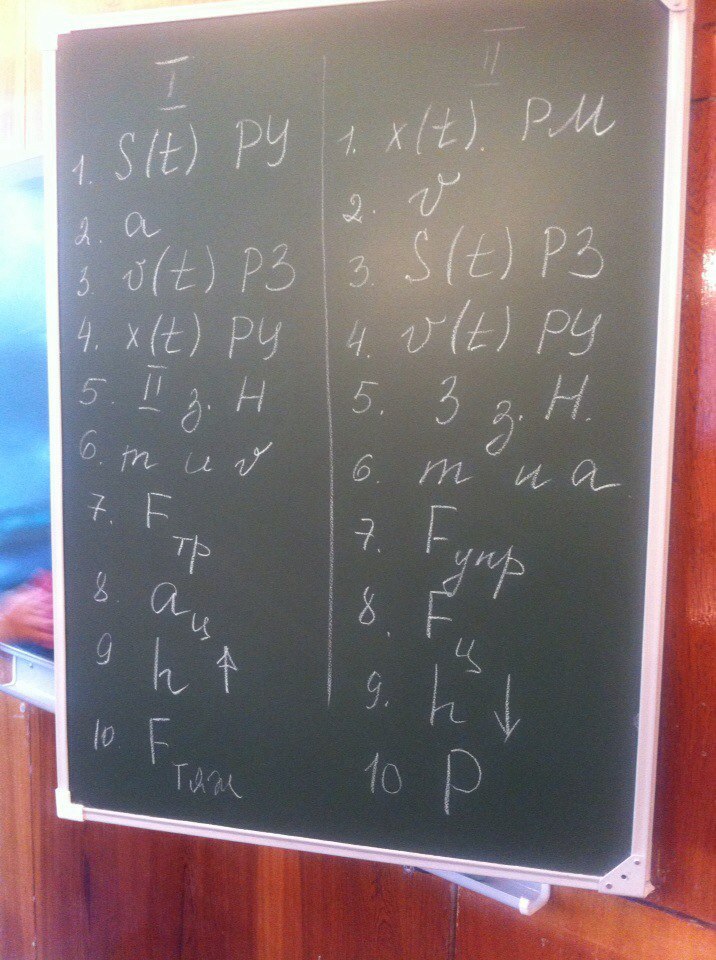 I
1. S(t) РУ
2. a
3 v(t) РЗ
4. x(t) РУ
5. II з. Н
6. m и v
7. Fтр
8. aц
9 h ↑
10 Fтяж
II
1. x(t). РМ
2. v
3. S(t) РЗ
4. v(t) РУ
5. 3 з. Н.
6. m и a
7. Fупр
8. Fц
9. h ↓
10 P